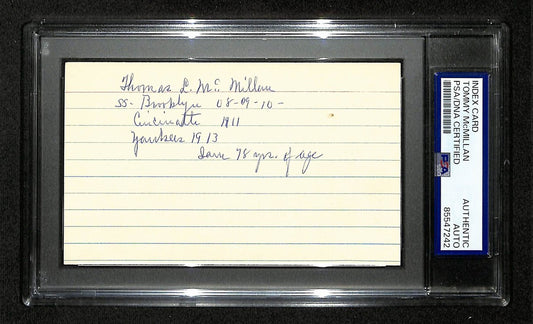 Thomas L. Mc Millan
SS - Brooklyn 08-09-10-
Cincinatti 1911
Yankees 1913
I am 78 yrs. of age
INDEX CARD
TOMMY McMILLAN
PSA/DNA CERTIFIED
PSA
AUTHENTIC
AUTO
85547242